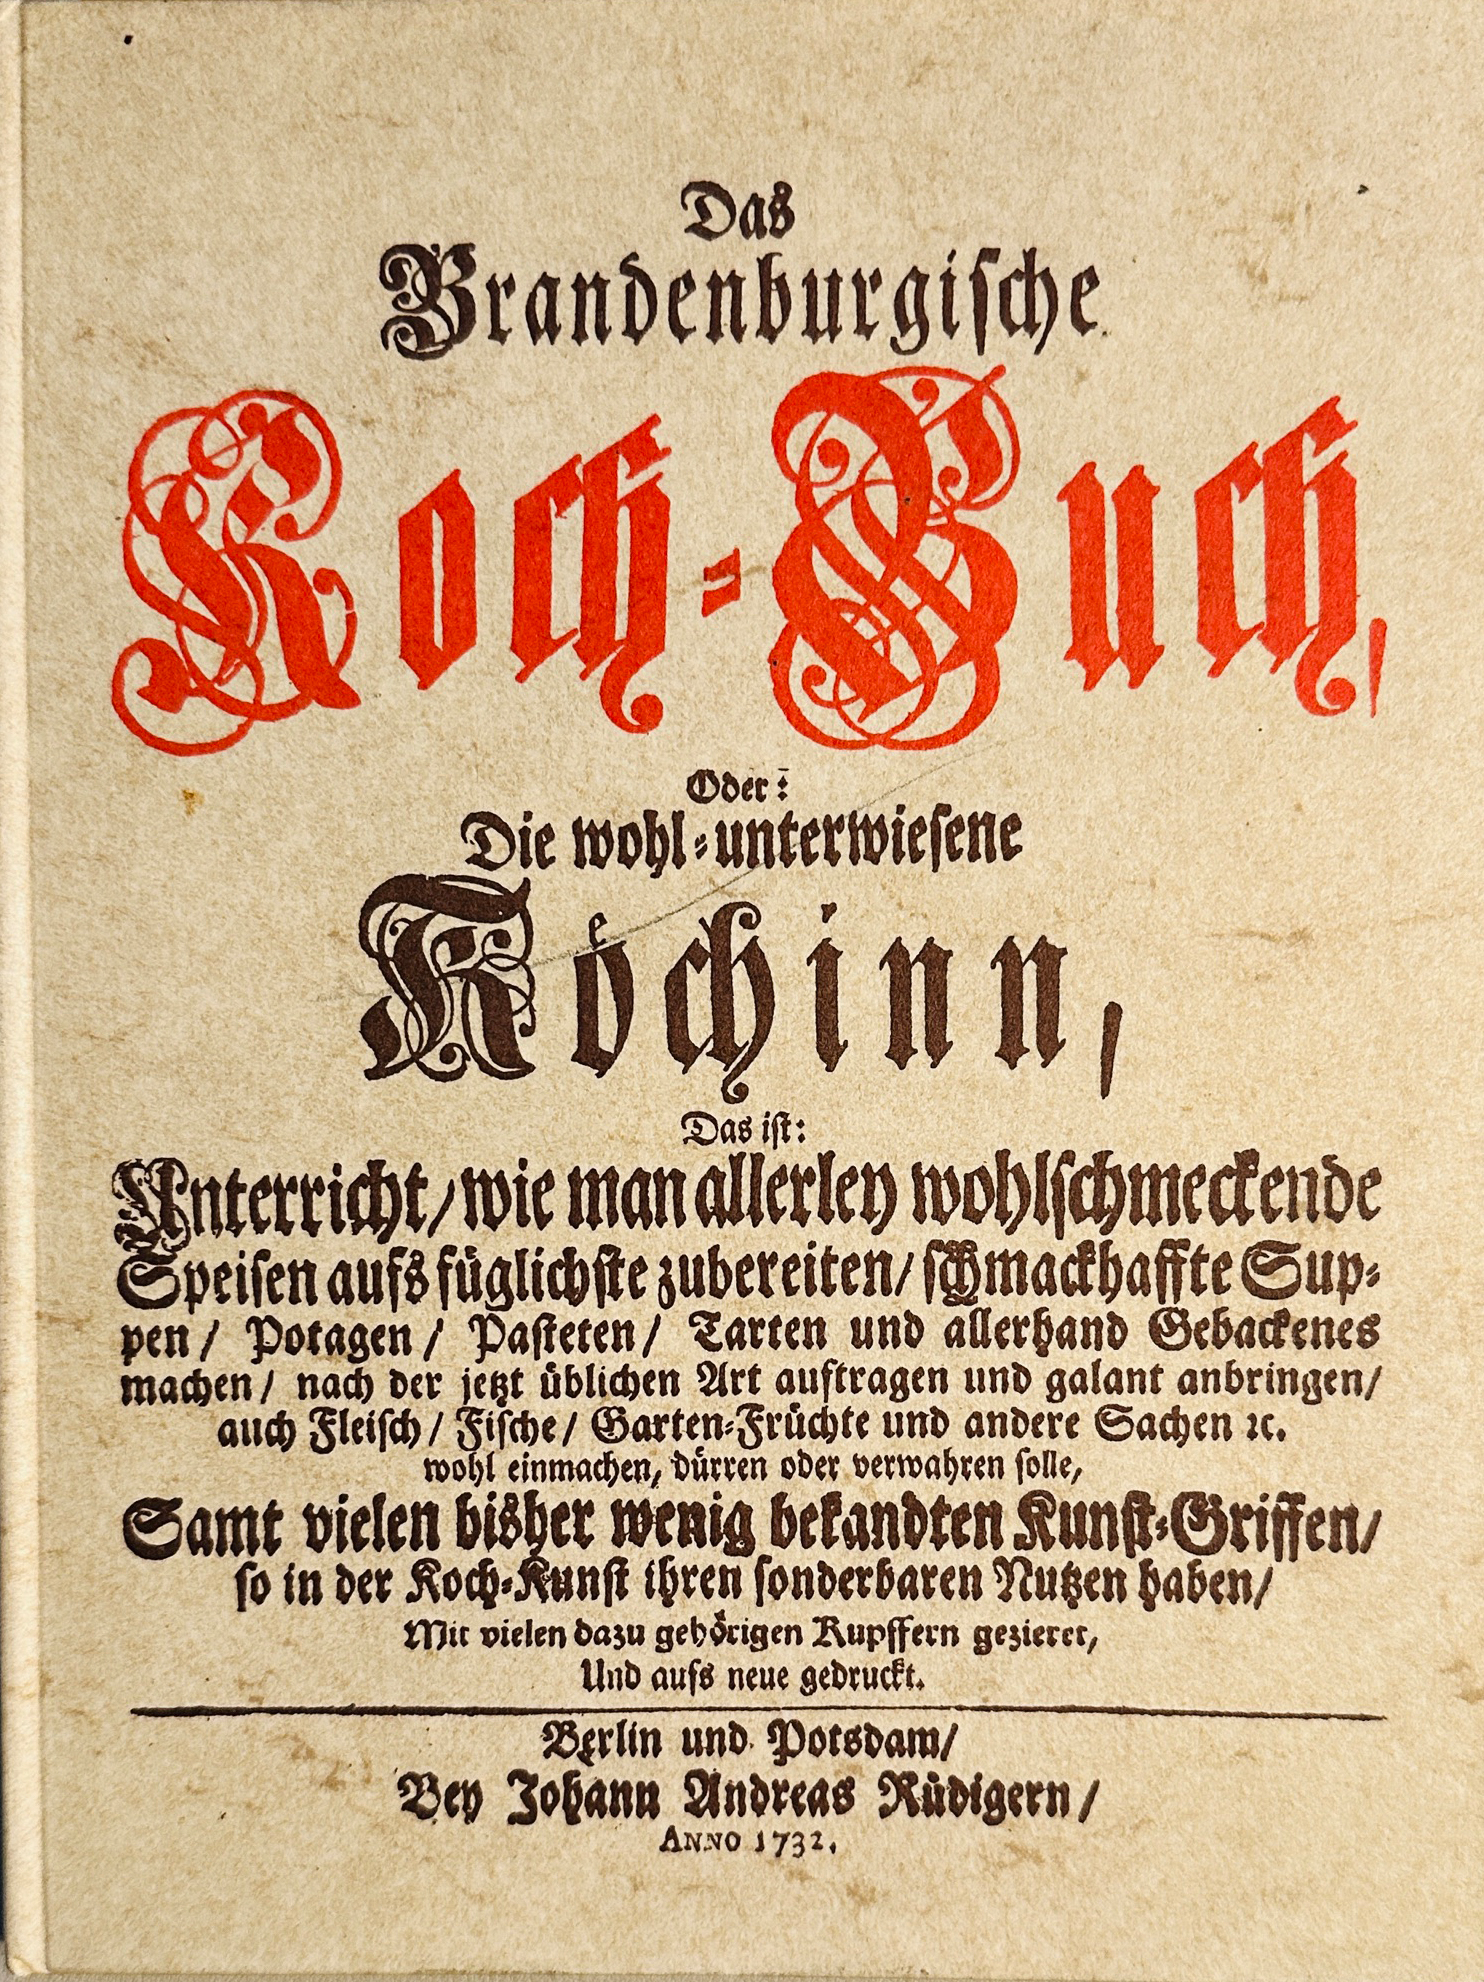 Das
Brandenburgische
Koch-Buch,
Oder:
Die wohl-unterwiesene
Koͤchinn,
Das ist:
Unterricht/ wie man allerley wohlschmeckende
Speisen aufs füglichste zubereiten/ schmackhaffte Sup-
pen/ Potagen/ Pasteten/ Tarten und allerhand Gebackenes
machen/ nach der jetzt üblichen Art auftragen und galant anbringen/
auch Fleisch/ Fische/ Garten-Früchte und andere Sachen ꝛc.
wohl einmachen, dürren oder verwahren solle,
Samt vielen bisher wenig bekandten Kunst-Griffen/
so in der Koch-Kunst ihren sonderbaren Nutzen haben/
Mit vielen dazu gehoͤrigen Kupffern gezieret,
Und aufs neue gedruckt.
Berlin und Potsdam/
Bey Johann Andreas Rüdigern/
ANNO 1732.